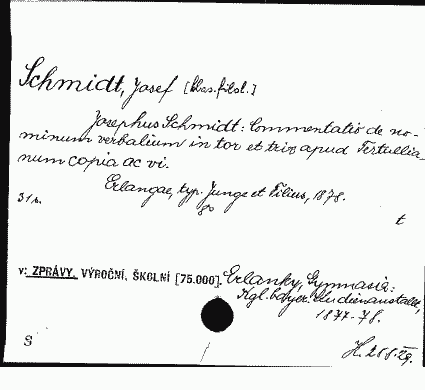 Schmidt, Josef [klas. filol.]
Josephus Schmidt: Commentatio de no-
minum verbalium in tor et trix apud Tertullia-
num copia ac vi.
Erlangae, typ. Junge et Filius, 1878.
31 s. 8°
t
v: ZPRÁVY, VÝROČNÍ, ŠKOLNÍ [75.000]. Erlanky, Gymnasia:
Kgl. bayer. Studienanstalt,
1877-78.
S